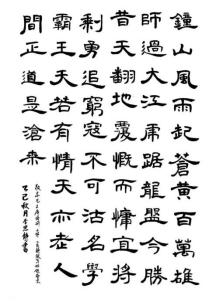 鐘山風雨起蒼黃百萬雄
師過大江虎踞龍盤今勝
昔天翻地覆慨而慷宜將
剩勇追窮寇不可沽名學
霸王天若有情天亦老人
間正道是滄桒
乙巳秋月